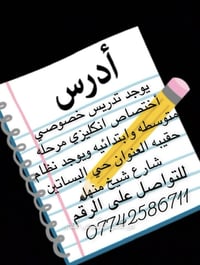 أدرس
يوجد تدريس خصوصي
اختصاص انكليزي مرحله
متوسطه وابتدائيه ويوجد نظام
حقيبه العنوان حي البساتين
شارع شيخ منهله
للتواصل على الرقم
07742586711